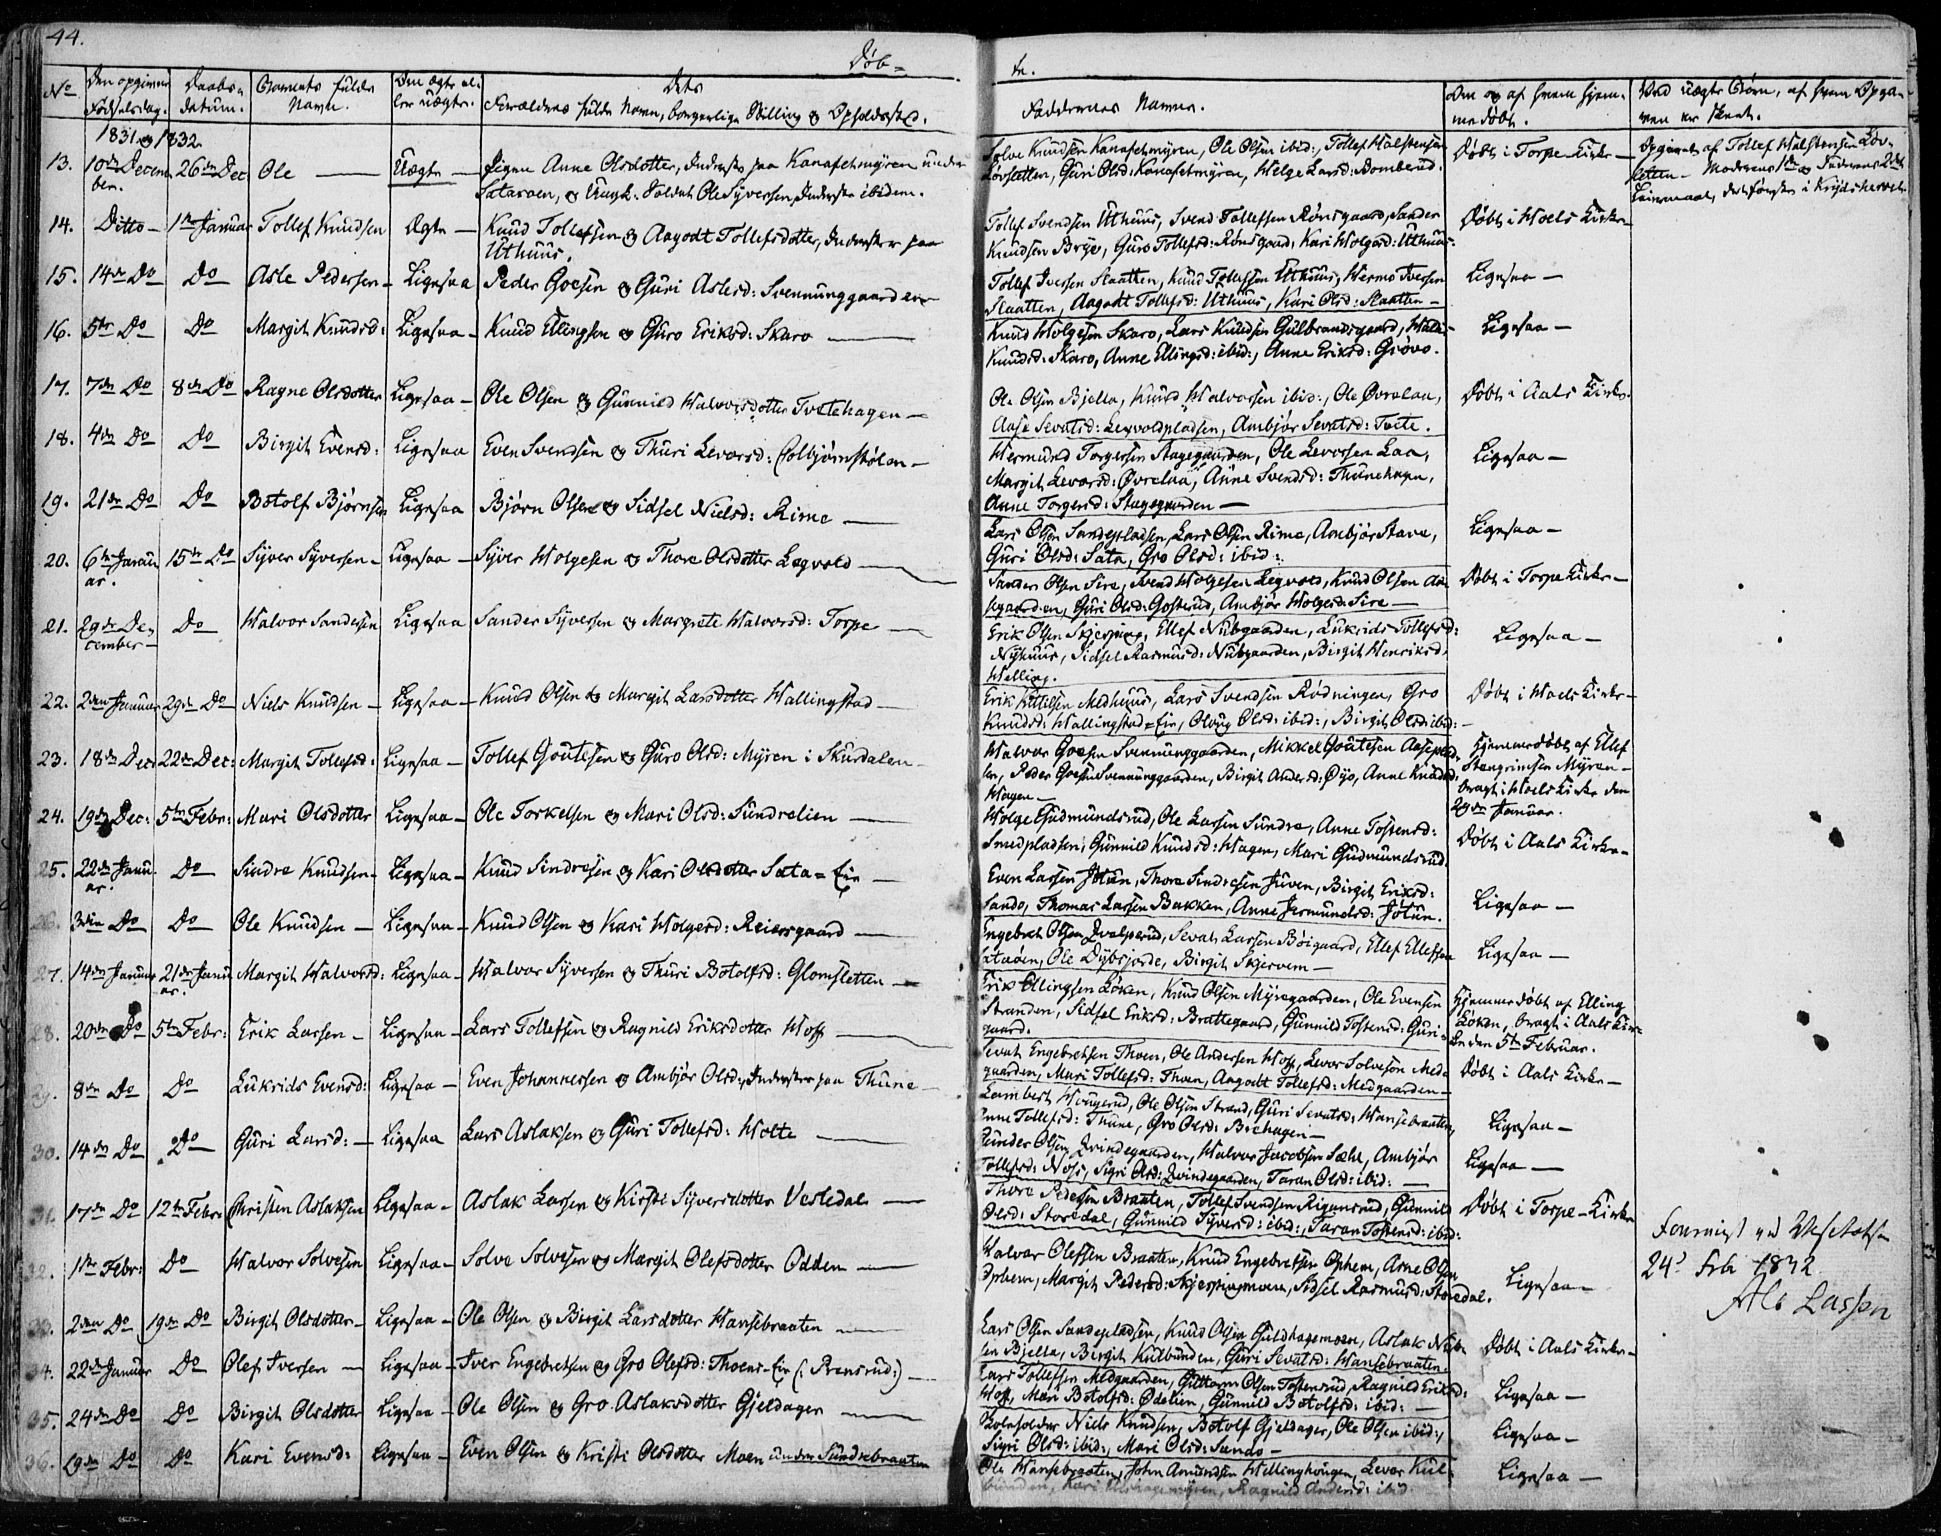 44.
Døb=
te.
No
Den opgivne Fødselsdag.
Daabs-datum.
Barnets fulde Navn.
Om ægte el-ler uægte.
Dets Forældres fulde Navn, borgerlige Stilling og Opholdssted.
Faddernes Navne.
Om og af hvem hjem-medøbt.
Ved uægte Børn, af hvem Opga-ven er skeet.
1831 og 1832
13. 10de Decem-ber. 26de Dec Ole — Uægte — Pigen Anne Olsdotter, Inderste paa Kanafetmyren under
Sataroen, og Soldat Ole Syversen, Inderste ibidem.
Solve Knudsen Kanafetmyren, Ole Olsen ibid:, Tollef Halstensen
Lovsletten, Guri Olsd: Kanafetmyren, Helge Larsd: Bomberud.
Døbt i Torpe Kirke —
Opgivet af Tollef Halstensen Lov-
sletten — Moderens 1ste og Faderens 2det
Leiermaal, det første i Krydsherred
14. Ditto — 1ste Januar Tollef Knudsen Ægte — Knud Tollefsen og Aagodt Tollefsdotter, Inderster paa
Uthuus.
Tollef Svendsen Uthuus, Svend Tollefsen Rønsgaard, Sander
Knudsen Brye, Guro Tollefsd: Rønsgaard, Kari Holgerd: Uthuus.
Døbt i Hoels Kirke —
15. 14de Do Do Asle Pedersen — Ligesaa Peder Goesen og Guri Aslesd: Svennunggaarden
Tollef Iversen Slaatten, Knud Tollefsen Uthuus, Hermo Iversen
Slaatten, Aagodt Tollefsd: Uthuus, Kari Olsd: Slaatten —
Ligesaa —
16. 5te Do Do Margit Knudsd: Ligesaa — Knud Ellingsen og Guro Eriksd: Skaro —
Knud Holgesen Skaro, Lars Knudsen Gulbrandsgaard,
Knudsd: Skaro, Anne Ellingsd: ibid:, Anne Eriksd: Grøvo.
Ligesaa —
17. 7de Do 8de Do Ragne Olsdotter Ligesaa — Ole Olsen og Gunnild Halvorsdotter Tvetehagen —
Ole Olsen Bjella, Knud Halvorsen ibid:, Ole Øvrelaa,
Aase Sevatsd: Legvoldpladsen, Ambjør Sevatsd: Tveite.
Døbt i Aals Kirke.
18. 4de Do Do Birgit Evensd: Ligesaa Even Svendsen og Thuri Levorsd: Colbjørnstølen —
Hermund Torgersen Stagegaarden, Ole Levorsen Laa,
Margit Levorsd: Øvrelaa, Anne Svendsd: Thunehagen,
Anne Torgersd: Stagegaarden —
Ligesaa —
19. 21de Do Do Botolf Bjørnsen Ligesaa Bjørn Olsen og Sidsel Nielsd: Rime —
Lars Olsen Sandepladsen, Lars Olsen Rime, Ambjør Stave,
Guri Olsd: Sata, Gro Olsd: ibid:.
Ligesaa —
20. 6te Janu-ar. 15de Do Syver Syversen — Ligesaa — Syver Holgesen og Thore Olsdotter Legvold —
Sander Olsen Sire, Svend Holgesen Legvold, Knud Olsen Aa-
segaarden, Guri Olsd: Gosterud, Ambjør Holgersd: Sire —
Døbt i Torpe Kirke —
21. 29de De-cember — Do Halvor Sandersen Ligesaa Sander Syversen og Margrete Halvorsd: Torpe —
Erik Olsen Skjerping, Ellef Nubgaarden, Lukrids Tollefsd:
Nyhuus, Sidsel Rasmusd: Nubgaarden, Birgit Henriksd:
Helling.
Ligesaa —
22. 2den Januar 29de Do Niels Knudsen — Ligesaa — Knud Olsen og Margit Larsdotter Hallingstad —
Erik Kittilsen Medhuus, Lars Svendsen Rødningen, Gro
Knudsd: Hallingstad-Eie, Olaug Olsd: ibid:, Birgit Olsd: ibid:
Døbt i Hoels Kirke —
23. 18de Dec: 22de Dec: Margit Tollefsd: Ligesaa — Tollef Goutesen og Guro Olsd: Myren i Skurdalen —
Halvor Goesen Svennunggaarden, Mikkel Goutesen Aasplad-
sen, Peder Goesen Svennunggaarden, Birgit Andersd: Øyo, Anne Knudsd:
Hagen —
Hjemmedøbt af Ellef
Stengrimsen Myren —
bragt i Hoels Kirke den
29de Januar.
24. 19de Dec: 5te Febr: Mari Olsdotter Ligesaa — Ole Torkelsen og Mari Olsd: Sundrelien —
Holge Gudmundsrud, Ole Larsen Sundre, Anne Tostensd:
Smedpladsen, Gunnild Knudsd: Hagen, Mari Gudmundsrud.
Døbt i Aals Kirke —
25. 22de Janu-ar. Do Sindre Knudsen — Ligesaa — Knud Sindresen og Kari Olsdotter Sata-Eie —
Even Larsen Jotun, Thore Sindresen Juven, Birgit Eriksd:
Sando, Thomas Larsen Bakken, Anne Jermundsd: Jotun.
Ligesaa —
26. 3die Do Do Ole Knudsen — Ligesaa — Knud Olsen og Kari Holgersd: Reiersgaard —
Engebret Olsen Qvalperud, Sevat Larsen Bøigaard, Ellef Ellefsen
Sataroen, Ole Dybsjorde, Birgit Skjervem —
Ligesaa —
27. 14de Januar 21de Janu-ar. Margit Halvorsd: Ligesaa — Halvor Syversen og Thuri Botolfsd: Glomsletten —
Erik Ellingsen Løken, Knud Olsen Myregaarden, Ole Evensen
Stranden, Sidsel Eriksd: Brattegaard, Gunnild Tostensd: Guri-
gaard.
Hjemmedøbt af Elling
Løken, bragt i Aals Kir-
ke den 5te Februar.
28. 20de Do 5te Febr: Erik Larsen — Ligesaa — Lars Tollefsen og Ragnild Eriksdotter Hoff —
Sevat Engebretsen Thoen, Ole Andersen Hoff, Levor Solvesøn Med-
gaarden, Mari Tollefsd: Thoen, Aagodt Tollefsd: Medgaarden —
Døbt i Aals Kirke —
29. 8de Do Do Lukrids Evensd: Ligesaa — Even Johannesen og Ambjør Olsd:, Inderster paa Thune —
Lambert Hougerud, Ole Olsen Strand, Guri Sevatsd: Hansebraaten,
Anne Tollefsd: Thune, Gro Olsd: Brehagen —
Ligesaa —
30. 14de Do Do Guri Larsd: — Ligesaa Lars Aslaksen og Guri Tollefsd: Holte —
Reinder Olsen Qvindegaarden, Halvor Jacobsen Sæhl, Ambjør
Tollefsd: Noss, Sigri Olsd: Qvindegaarden, Taran Olsd: ibid: —
Ligesaa —
31. 17de Do 12te Febr: Christen Aslaksen Ligesaa — Aslak Larsen og Kirsti Syversdotter Vesledal —
Thore Pedersen Braaten, Tollef Svendsen Rigunsrud, Gunnild
Olsd: Storedal, Gunnild Syversd: ibid:, Taran Tostensd: ibid:
Døbt i Torpe-Kirke
32. 1ste Febr: Do Halvor Solvesen Ligesaa — Solve Solvesen og Margit Olefsdotter Odden —
Halvor Olefsen Braaten, Knud Engebretsen Ophem, Arne Olsen
Ophem, Margit Pedersd: Skjerpingmoen, Sidsel Rasmusd: Storedal.
Ligesaa —
33. 2den Do 19de Do Birgit Olsdotter — Ligesaa — Ole Olsen og Birgit Larsdotter Hansebraaten —
Lars Olsen Sandepladsen, Knud Olsen Guldhagemoen, Aslak Niel-
sen Bjella, Birgit Kulbunden, Guri Sevatsd: Hansebraaten.
Døbt i Aals Kirke —
34. 22de Januar Do Olef Iversen — Ligesaa — Iver Engebretsen og Gro Olefsd: Thoens-Eie (: Prensrud:) —
Lars Tollefsen Medgaarden, Guttorm Olsen Tostensrud, Ragnild Eriksd:
Hoff, Mari Botolfsd: Ødelien, Gunnild Botolfsd: ibid: —
Ligesaa —
35. 24de Do Do Birgit Olsdotter Ligesaa — Ole Olsen og Gro Aslaksdotter Gjeldager —
Skoleholder Niels Knudsen, Botolf Gjeldager, Ole Olsen ibid:,
Sigri Olsd: ibid:, Mari Olsd: Sando —
Ligesaa —
36. 19de Do Do Kari Evensd: Ligesaa — Even Olsen og Kristi Olsdotter Moen under Sundrebraaten
Ole Hansebraaten, John Amundsen Hellinghougen, Levor Kul-
bunden, Ragnild Andersd: ibid
Ligesaa —
24d Febr 1832
Lassen